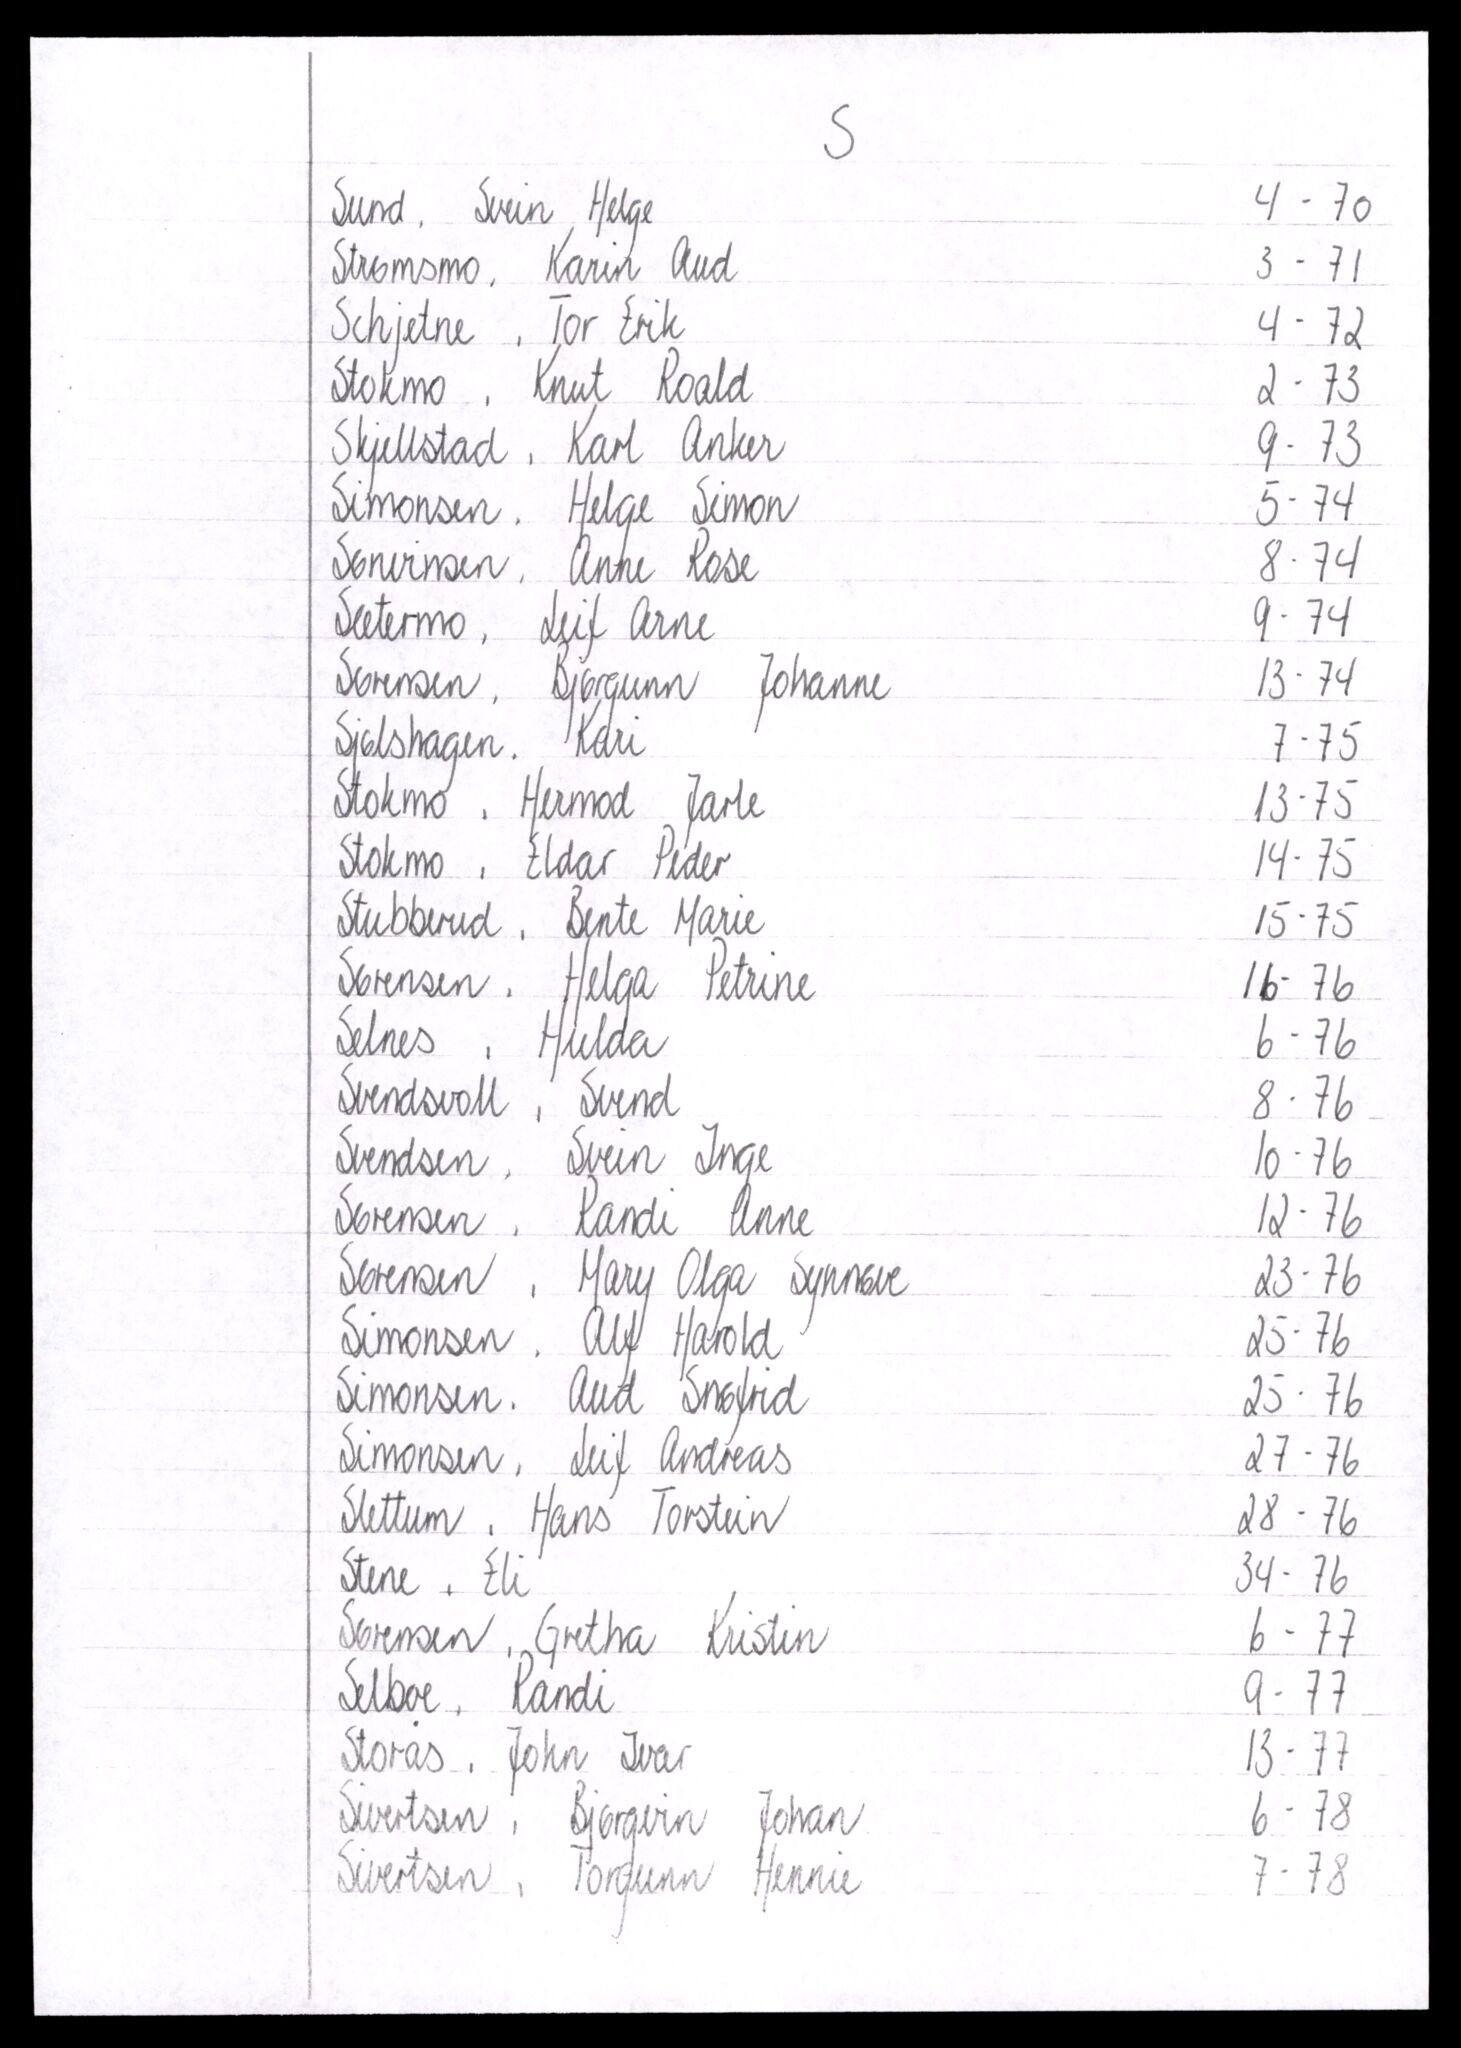 S
Sund, Svein Helge 4 - 70
Strømsmo, Karin Aud 3 - 71
Schjetne, Tor Erik 4 - 72
Stokmo, Knut Roald 2 - 73
Skjellstad, Karl Anker 9 - 73
Simonsen, Helge Simon 5 - 74
Anne Rose 8 - 74
Sætermo, Leif Arne 9 - 74
Sørensen, Bjørgunn Johanne 13 - 74
Sjølshagen, Kari 7 - 75
Stokmo, Hermod Jarle 13 - 75
Stokmo, Eldar Peder 14 - 75
Stubberud, Bente Marie 15 - 75
Sørensen, Helga Petrine 16 - 76
Selnes, Hulda 6 - 76
Svendsvoll, Svend 8 - 76
Svendsen, Svein Inge 10 - 76
Sørensen, Randi Anne 12 - 76
Sørensen, Mary Olga Synnøve 23 - 76
Simonsen, Alf Harold 25 - 76
Simonsen, Aud Snøfrid 25 - 76
Simonsen, Leif Andreas 27 - 76
Slettum, Hans Torstein 28 - 76
Stene, Eli 34 - 76
Sørensen, Gretha Kristin 6 - 77
Selboe, Randi 9 - 77
Storås, John Ivar 13 - 77
Sivertsen, Bjørgvin Johan 6 - 78
Sivertsen, Torgunn Hennie 7 - 78